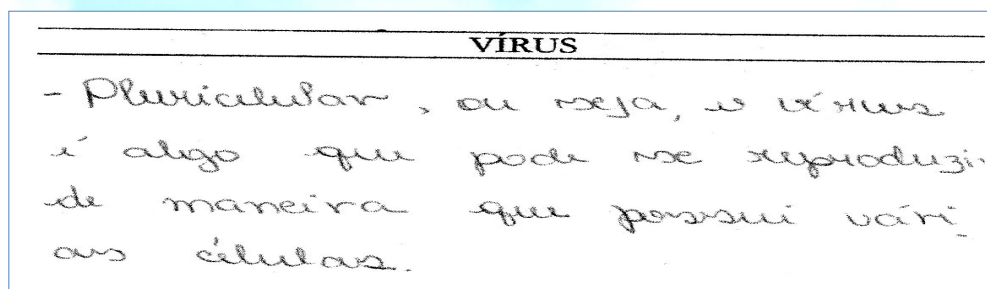 VÍRUS
- Pluricelular, ou seja, o vírus
é algo que pode se reproduzi
de maneira que possui vári_
as células.